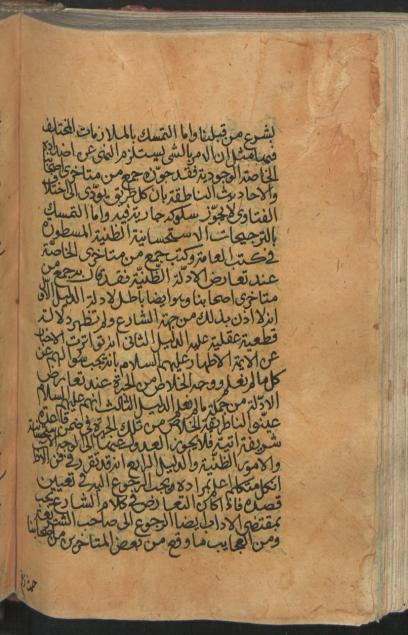 بشرع من قبلنا واما التمسك بالملازمات المختلف
فيها مثل ان الامر بالشئ يستلزم النهى عن اضداده
الخاصة الوجودية فقد جوزه جمع من متاخرى اصحابنا
والاحاديث الناطقة بان كل طريق يؤدى الى اختلاف
الفتاوى لا يجوز سلوكه جارية فيه واما التمسك
بالترجيحات الاستحسانية الظنية المسطورة
فى كتب العامة وكتب جمع من متاخرى الخاصة
عند تعارض الادلة الظنية فقد قال به جمع من
متاخرى اصحابنا وهو ايضا باطل لادلة الدليل الاول
انه لا اذن بذلك من جهة الشارع ولم تظهر دلالة
قطعية عقلية عليه الدليل الثانى انه تواترت الاخبار
عن الائمة الاطهار عليهم السلام بانه يجب سؤالهم عن
كل ما لم يعلم ووجه الخلاص من الحيرة عند تعارض
الادلة من جملة ما لم يعلم الدليل الثالث انهم عليهم السلام
عينوا لنا طريقة الخلاص من تلك الحيرة فى ضمن قاعدة
شريفة فلا يجوز العدول عنها الى الوجوه
والامور الظنية والدليل الرابع انه قد تقرر فى فن
ان كل متكلم اعلم بمراده ويجب الرجوع اليه فى تعيين
قصده فاذا كان التعارض فى كلام الشارع يجب
بمقتضى الاداب ايضا الرجوع الى صاحب الشريعة
ومن العجايب ما وقع من بعض المتاخرين من اصحابنا